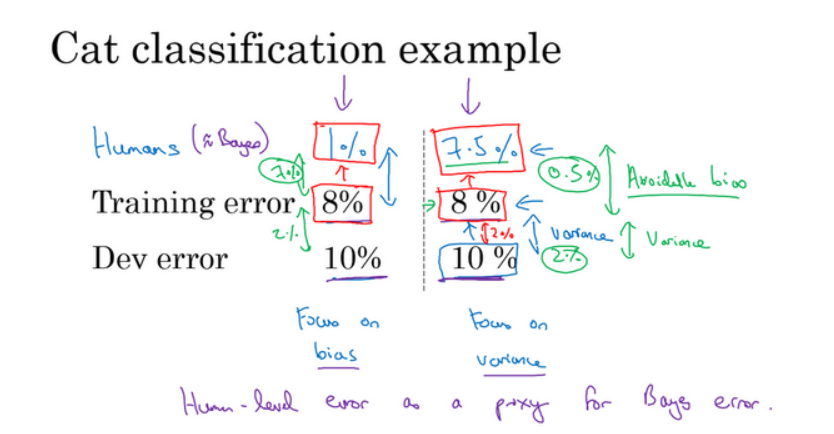 Cat classification example
Humans (≈ Bayes) 1% 7.5%
7% 0.5% Avoidable bias
Training error 8% 8 %
2% 2% variance Variance
Dev error 10% 10 % 2%
Focus on bias
Focus on variance
Human-level error as a proxy for Bayes error.